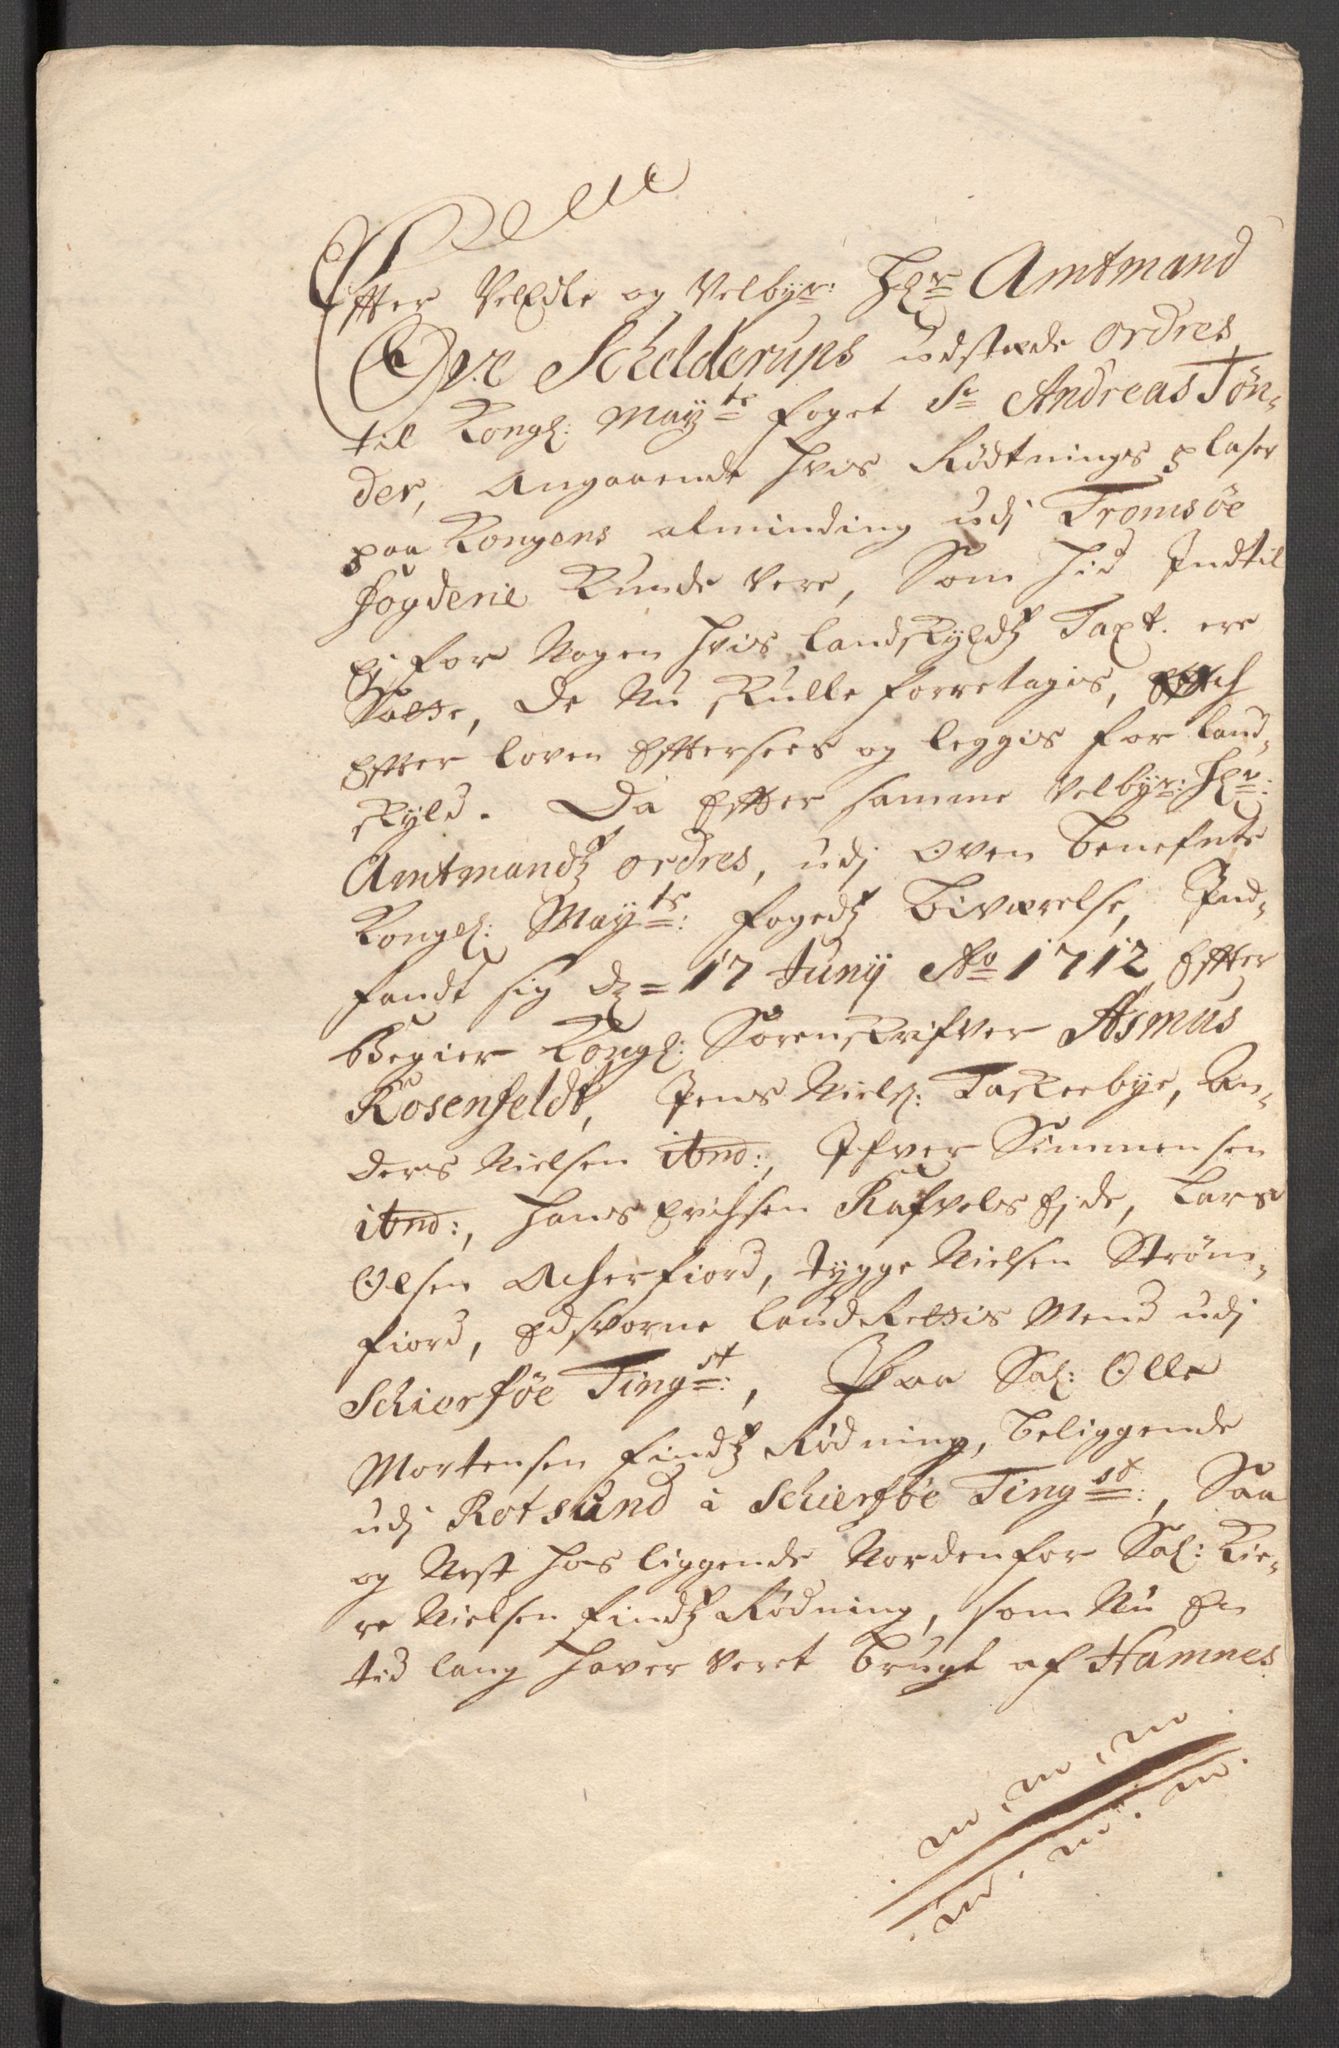 Effter Velædle og Velbyr: Hr Amtmand
Ove Schelderups udstæde ordres
til Kongl: Mayts foget Sr Andreas Tøn-
der, Angaaende hvis Rødtnings plaser
paa Kongens alminding udj Tromsøe
fogderie Kunde vere, Som hid Indtil
Ej for Nogen hvis landskyldtz Taxt. ere
Satte, De Nu skulle foretagis,
Effter loven Efftersees og leggis for land-
skyld. Da Effter samme Velbyr: Hr:
Amtmandtz ordres, udj oven benefnte
Kongel: Mayts: fogedtz biværelse, Ind-
fandt sig dz = 17 Junij Ao 1712 Effter
Begier Kongl: Sorenskrifver Asmus
Rosenfeldt, Jens Niels: Taskebye, An-
ders Nielsen itmd:, Ifver Simmensen
itmd:, Hans Erichsen Rafvels Ejde, Lars
Olsen Acherfiord, Tygge Nielsen Strøm-
fiord, Edsvorne laugRettis Mend udj
Schierføe Tingst:, Paa Sal: Olle
Mortensen findtz Rødning, beliggende
udj Rotsund i Schierføe Tingst:, Saa
og Nest hos liggende Norden for Sal: Kie-
re Nielsen findtz Rødning, som Nu En
tid lang haver veret brugt af Hamnes
. m . m . m .
. m . m . m .